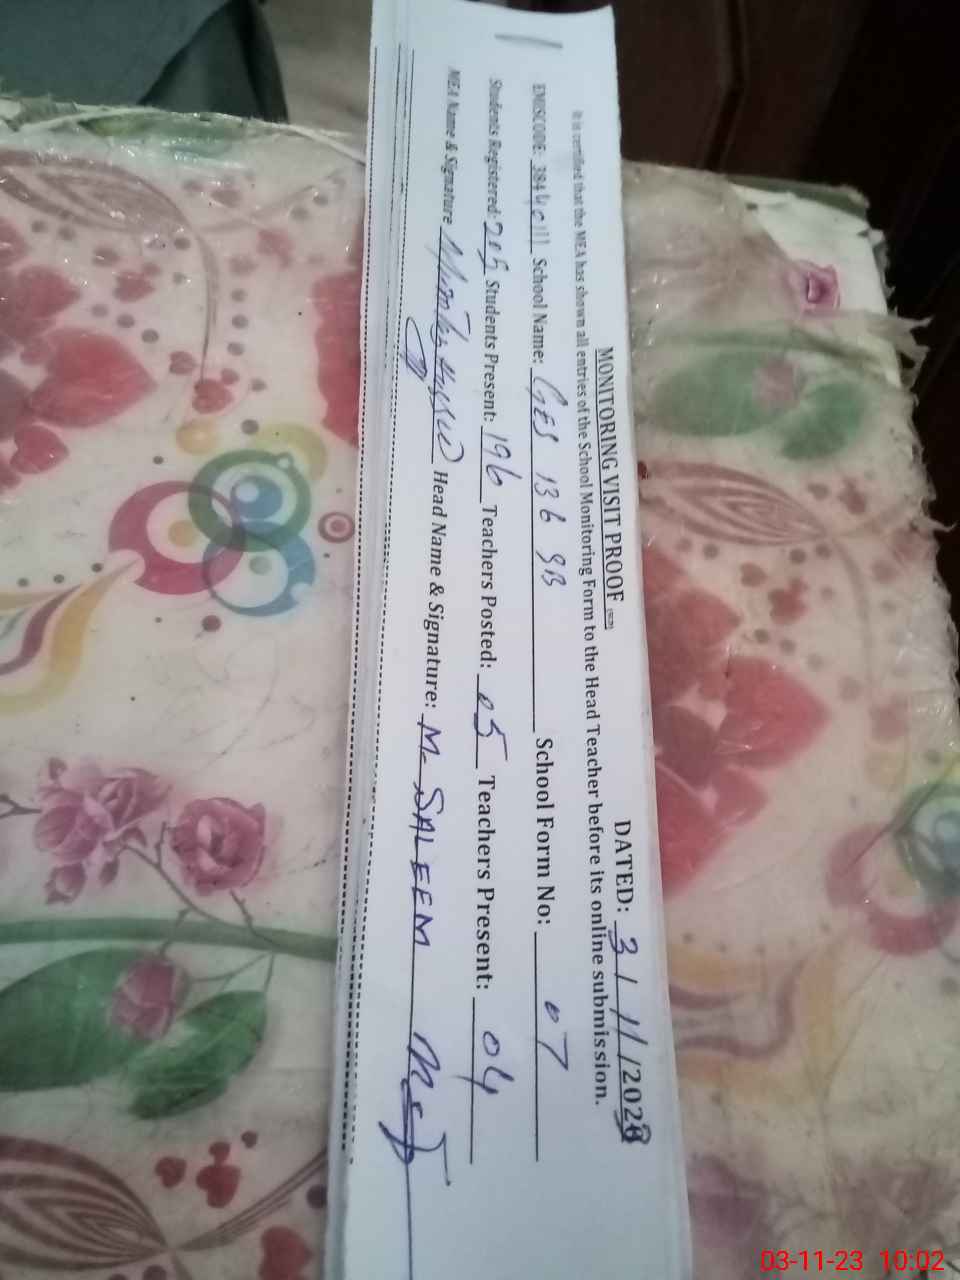 MONITORING VISIT PROOF DATED: 3/11/2023
It is certified that the MEA has shown all entries of the School Monitoring Form to the Head Teacher before its online submission.
EMISCODE: 384 School Name: GES 136 9B School Form No: 07
Students Registered: 205 Students Present: 196 Teachers Posted: 05 Teachers Present: 04
MEA Name & Signature Head Name & Signature: M. SALEEM
03-11-23 10:02